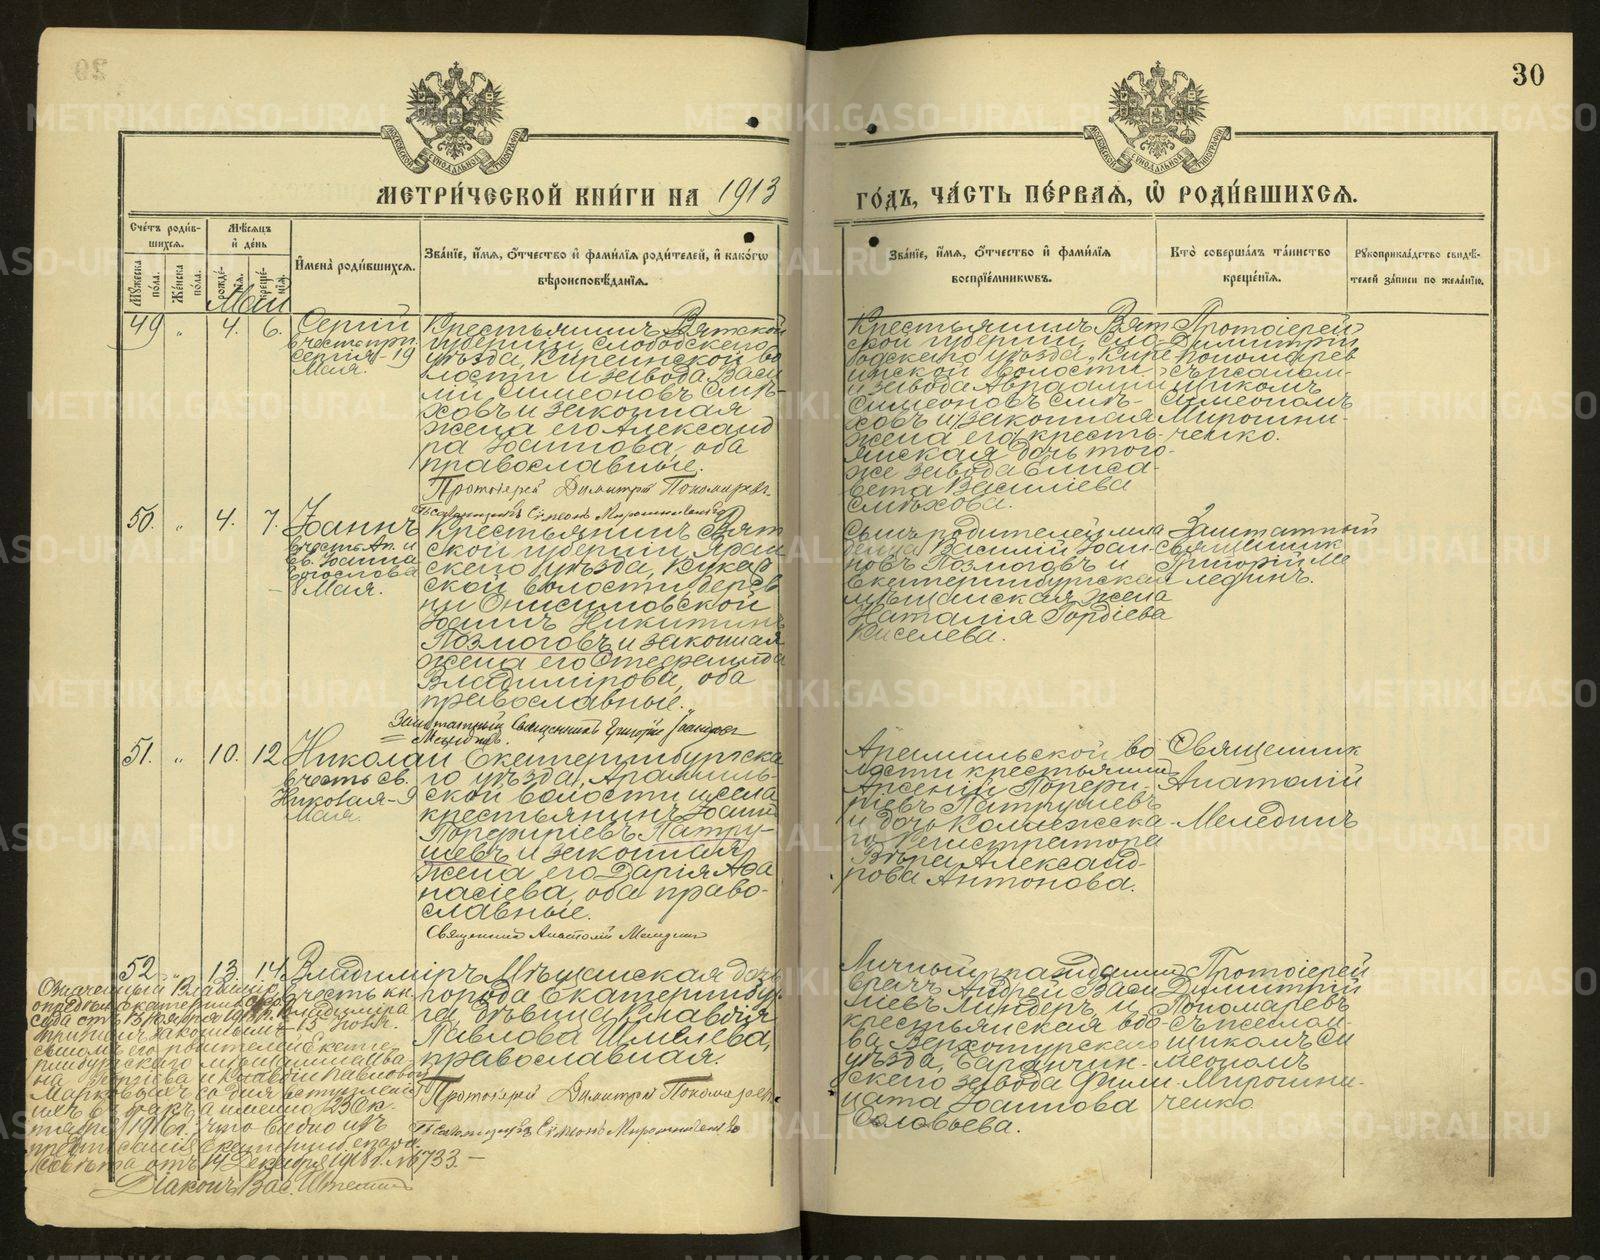 30
МЕТРИ́ЧЕСКОЙ КНИ́ГИ НА 1913
ГО́ДЪ, ЧА́СТЬ ПЕ́РВАѦ, Ѽ РОДИ́ВШИХСѦ.
Сче́тъ роди́в-
шихсѧ.
Мѣ́сѧцъ
и҆ де́нь
Мꙋ́жеска по́ла.
Же́нска по́ла.
рожде́-
нїѧ.
креще́-
нїѧ.
И҆мена̀ роди́вшихсѧ.
Зва́нїе, и҆́мѧ, ѻ҆́тчество и҆ фами́лїѧ роди́телей, и҆ како́гѡ
вѣроисповѣ́данїѧ.
Зва́нїе, и҆́мѧ, ѻ҆́тчество и҆ фами́лїѧ
воспрїе́мникѡвъ.
Кто̀ соверша́лъ та́инство
креще́нїѧ.
Рꙋкоприкла́дство свидѣ́-
телей за́писи по жела́нїю.
Май
49 " 4. 6.
Сергій
въ честь прп.
Сергія - 19
Мая.
Крестьянинъ Вятской
губерніи, Слободскаго
уѣзда, Кирсинской во
лости и завода Васи
лій Симеоновъ Смѣ-
ховъ и законная
жена его Александ
ра Іоаннова, оба
православные.
Протоіерей Димитрій Пономаревъ
Псаломщикъ Симеонъ Мирошниченко
Крестьянинъ Вят
ской губерніи, Сло-
бодскаго уѣзда, Кирс
инской волости
и завода Авраамій
Симеоновъ Смѣ-
ховъ и (законная
жена его) кресть-
янская дочь того-
же завода Елиса-
вета Василіева
Смѣхова.
Протоіерей
Димитрій
Пономарев
съ псалом-
щикомъ
Симеономъ
Мирошни-
ченко.
50. " 4. 7.
Іоаннъ
въ честь Ап. и
Ев. Іоанна
Богослова
- 8 Мая.
Крестьянинъ Вят
ской губерніи, Яран
скаго уѣзда, Кукар
ской волости, дерев
ни Онисимовской
Іоаннъ Никитинъ
Позмоговъ и законная
жена его
Владимірова, оба
православные.
Заштатный Священникъ Григорій
Мелединъ.
Сынъ родителей мла
денца Василій Іоан-
новъ Позмоговъ и
Екатеринбургская
мѣщанская жена
Наталія Гордіева
Киселева.
Заштатный
священник
Григорій Ме
лединъ.
51. " 10. 12
Николай
въ честь св.
Николая - 9
Мая.
Екатеринбургска
го уѣзда, Арамиль-
ской волости и села
крестьянинъ Іоаннъ
Порфиріевъ Патру-
шевъ и законная
жена его Дарія Аѳа
насіева, оба право-
славные.
Священникъ Анатолій Мелединъ
Арамильской во
лости крестьянинъ
Арсеній Порфи-
ріевъ Патрушевъ
и дочь Коллежска-
го Регистратора
Вѣра Александ-
рова Антонова.
Священник
Анатолій
Мелединъ
52 " 13. 14.
Владиміръ
въ честь кн.
Владиміра
- 15 Іюля.
Мѣщанская дочь
города Екатеринбур
га, дѣвица Клавдія
Павлова Шмелева,
православная.
Протоіерей Димитрій Пономаревъ
Псаломщикъ Симеонъ Мирошниченко
Личный гражданинъ
врачъ Андрей Васи
ліевъ Линдеръ и
крестьянская вдо-
ва Верхотурскаго
уѣзда, Баранчин-
скаго завода Фили-
цата Іоаннова
Соловьева.
Протоіерей
Димитрій
Пономаревъ
съ псалом-
щикомъ Си
меономъ
Мирошни-
ченко
Означенный Владиміръ,
опредѣл. Екатеринб. Окр.
суда отъ
признанъ законнымъ
сыномъ его родителей Екате-
ринбургскаго мѣщанина Ива-
на и Клавдіи Павловой
Марковыхъ со дня вступленія
ихъ въ бракъ, а именно 23 Ок-
тября 1916 г., что видно изъ
Діаконъ Вас.